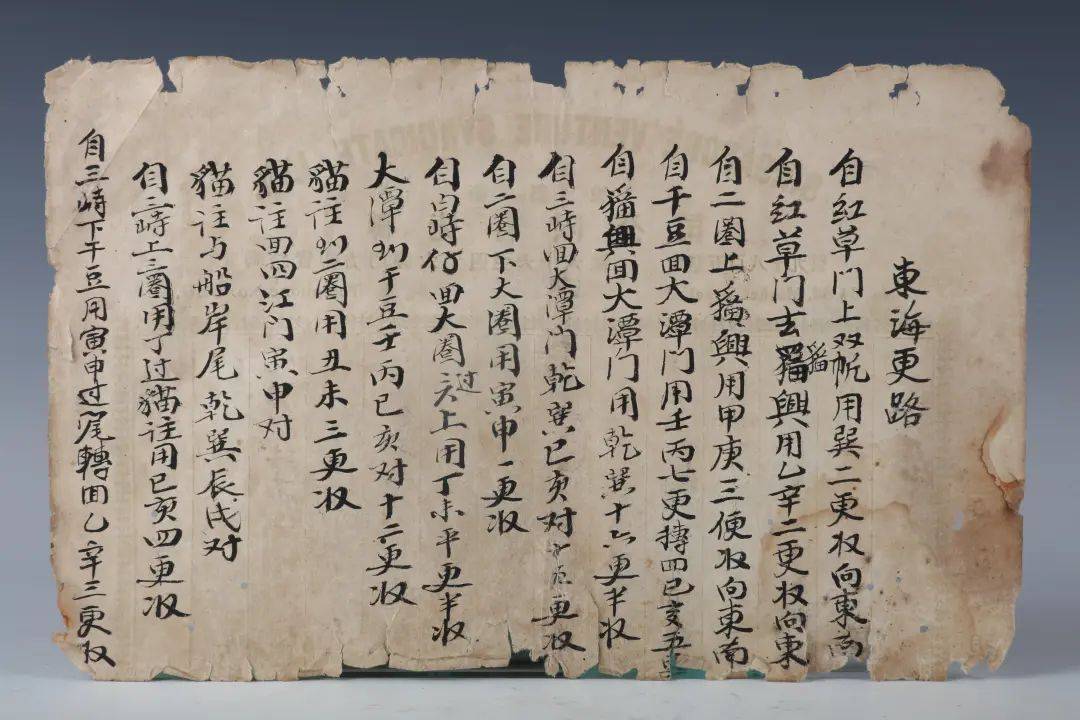 東海更路
自红草门上双帆用巽二更收向東南
自红草门去猫興用乙辛二更收向東
猫
自二圈上猫興用甲庚三便收向東南
自干豆回大潭门用壬丙七更轉四巳亥五
自猫興回大潭门用乾巽十六更半收
自三峙回大潭门乾巽巳亥对更收
自二圈下大圈用寅申一更收
自白峙仔回大圈上用丁未平更半收
过
大潭刈干豆壬丙巳亥对十二更收
猫注刈二圈用丑未三更收
猫注回四江门寅申对
猫注与船岸尾乾巽辰戌对
自三峙上三圈用丁过猫注用巳亥四更收
自三峙下干豆用寅申过尾轉回乙辛三更收
VENTURE SYNDICATE